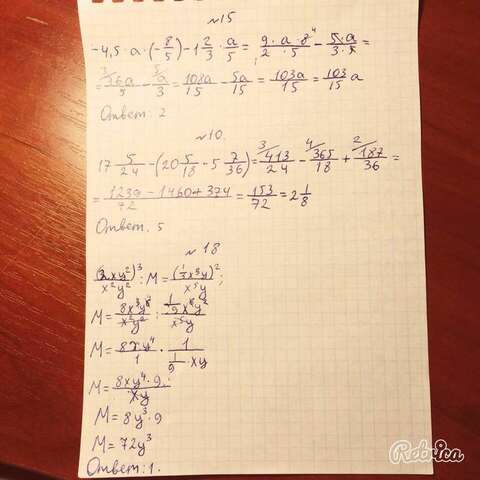 №15
-4,5 · a · (-8/5) - 1 2/3 · a/5 = 9 · a · 8/2 · 5 - 5 · a/3 · 5 =
= 36a/5 - 5a/3 = 108a/15 - 5a/15 = 103a/15 = 103/15 a
Ответ: 2
№10.
17 5/24 - (20 5/18 - 5 7/36) = 413/24 - 365/18 + 187/36 =
= 1239 - 1460 + 374/72 = 153/72 = 2 1/8
Ответ. 5
№18
(2xy²)³/x²y² : M = (1/3x³y)²/x⁵y;
M = 8x³y⁶/x²y² : 1/9x⁶y²/x⁵y
M = 8xy⁴/1 · 1/1/9 · xy
M = 8xy⁴ · 9/xy;
M = 8y³ · 9
M = 72y³
Ответ: 1.
Retrica